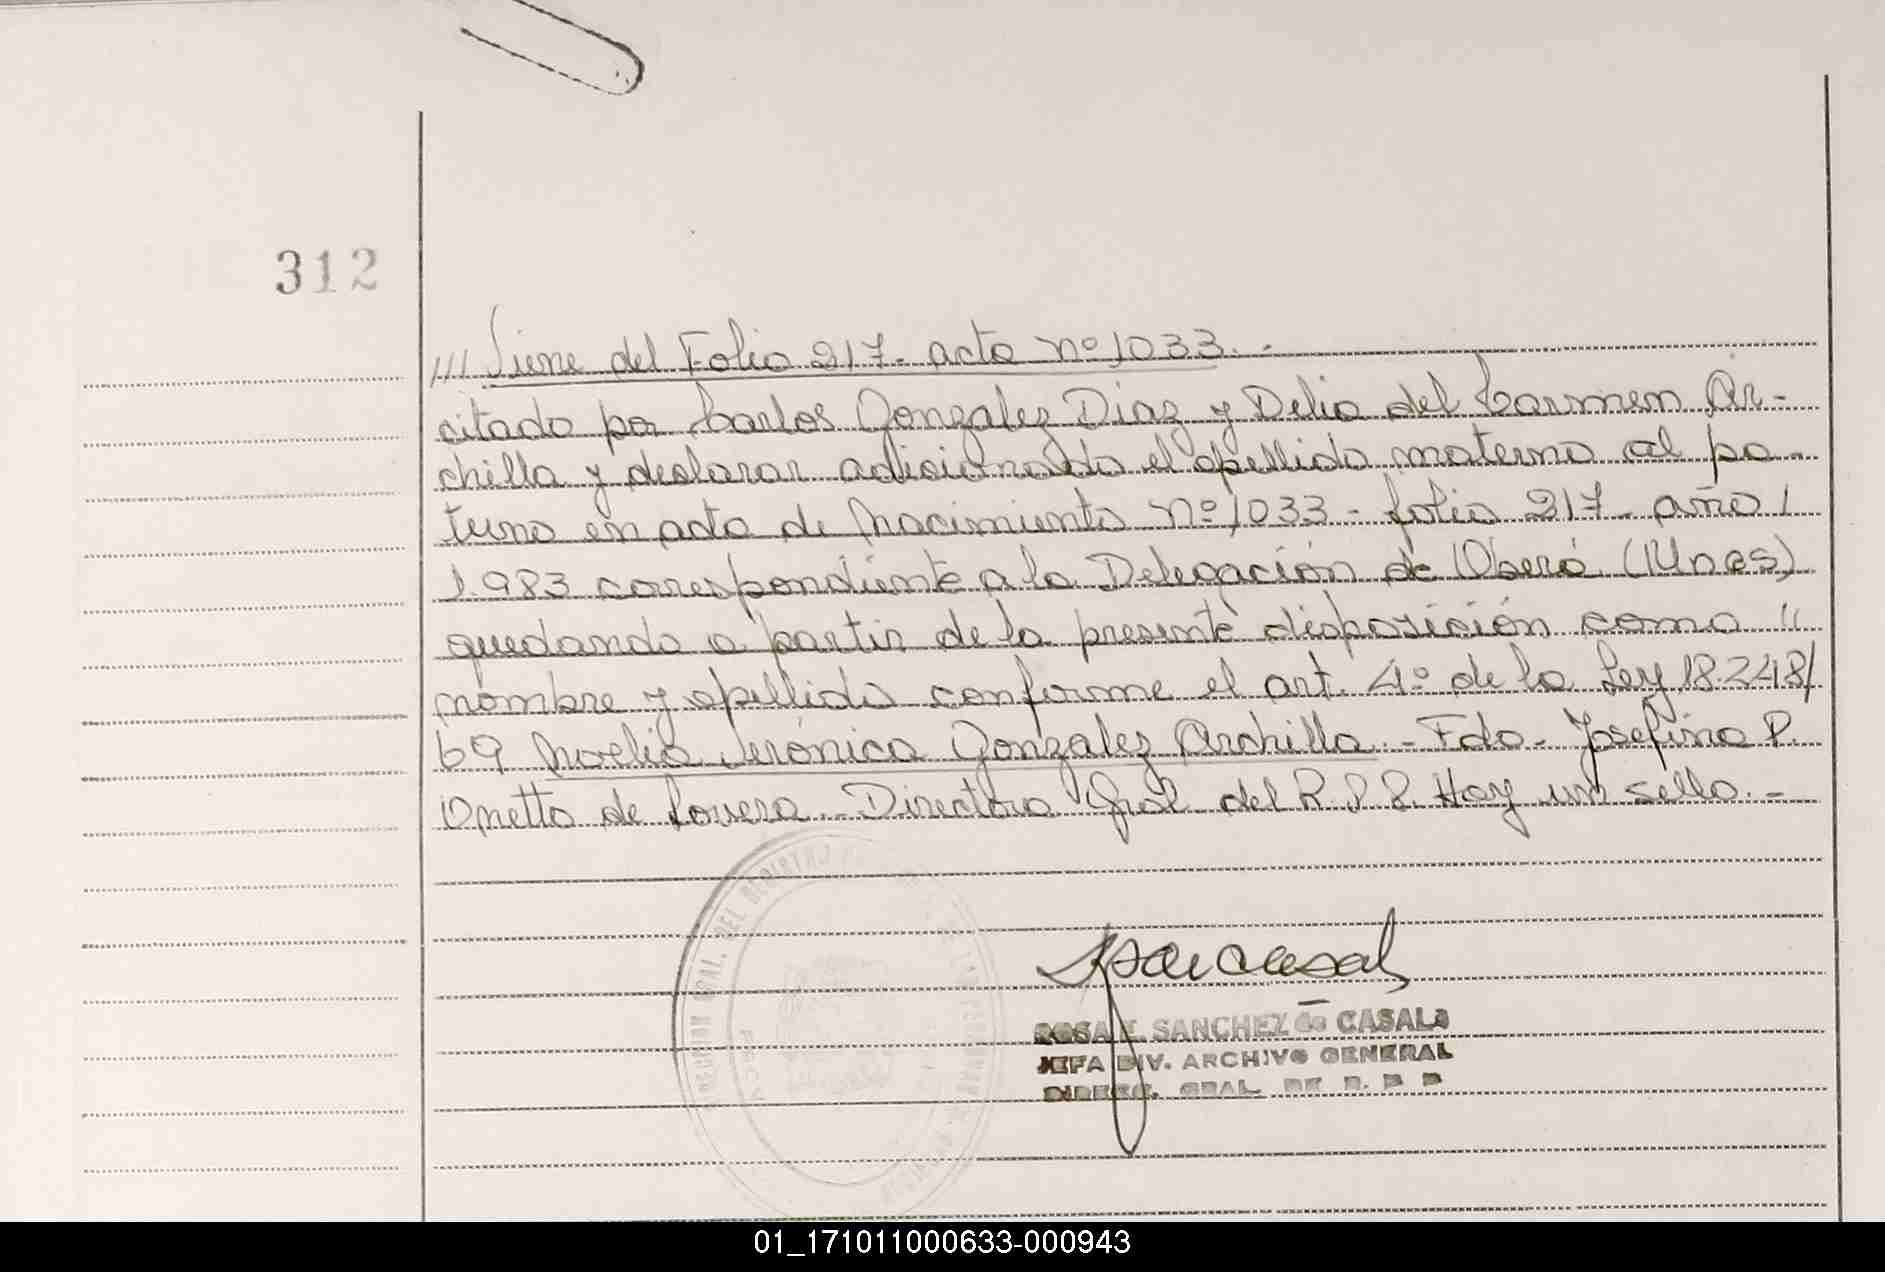 312
/// Viene del Folio 217. acta nº 1033.-
citado por Carlos Gonzalez Diaz y Delia del Carmen Ar-
chilla y declarar adicionado el apellido materno al pa-
terno en acta de Nacimiento nº 1033 - folio 217 - año /
1.983 correspondiente a la Delegación de Oberá (Mnes)
quedando a partir de la presente disposición como "
nombre y apellido conforme el art. 4º de la Ley 18.248/
69 Noelia Verónica Gonzalez Archilla.- Fdo.- Josefina P.
Onetto de Lovera.- Directora Gral del R.P.P. Hay un sello.-
DIRECCION GRAL. DEL REGISTRO DE LAS PERSONAS
ROSA E. SANCHEZ de CASALS
JEFA DIV. ARCHIVO GENERAL
DIRECC. GRAL. DE R. P. P.
01_171011000633-000943